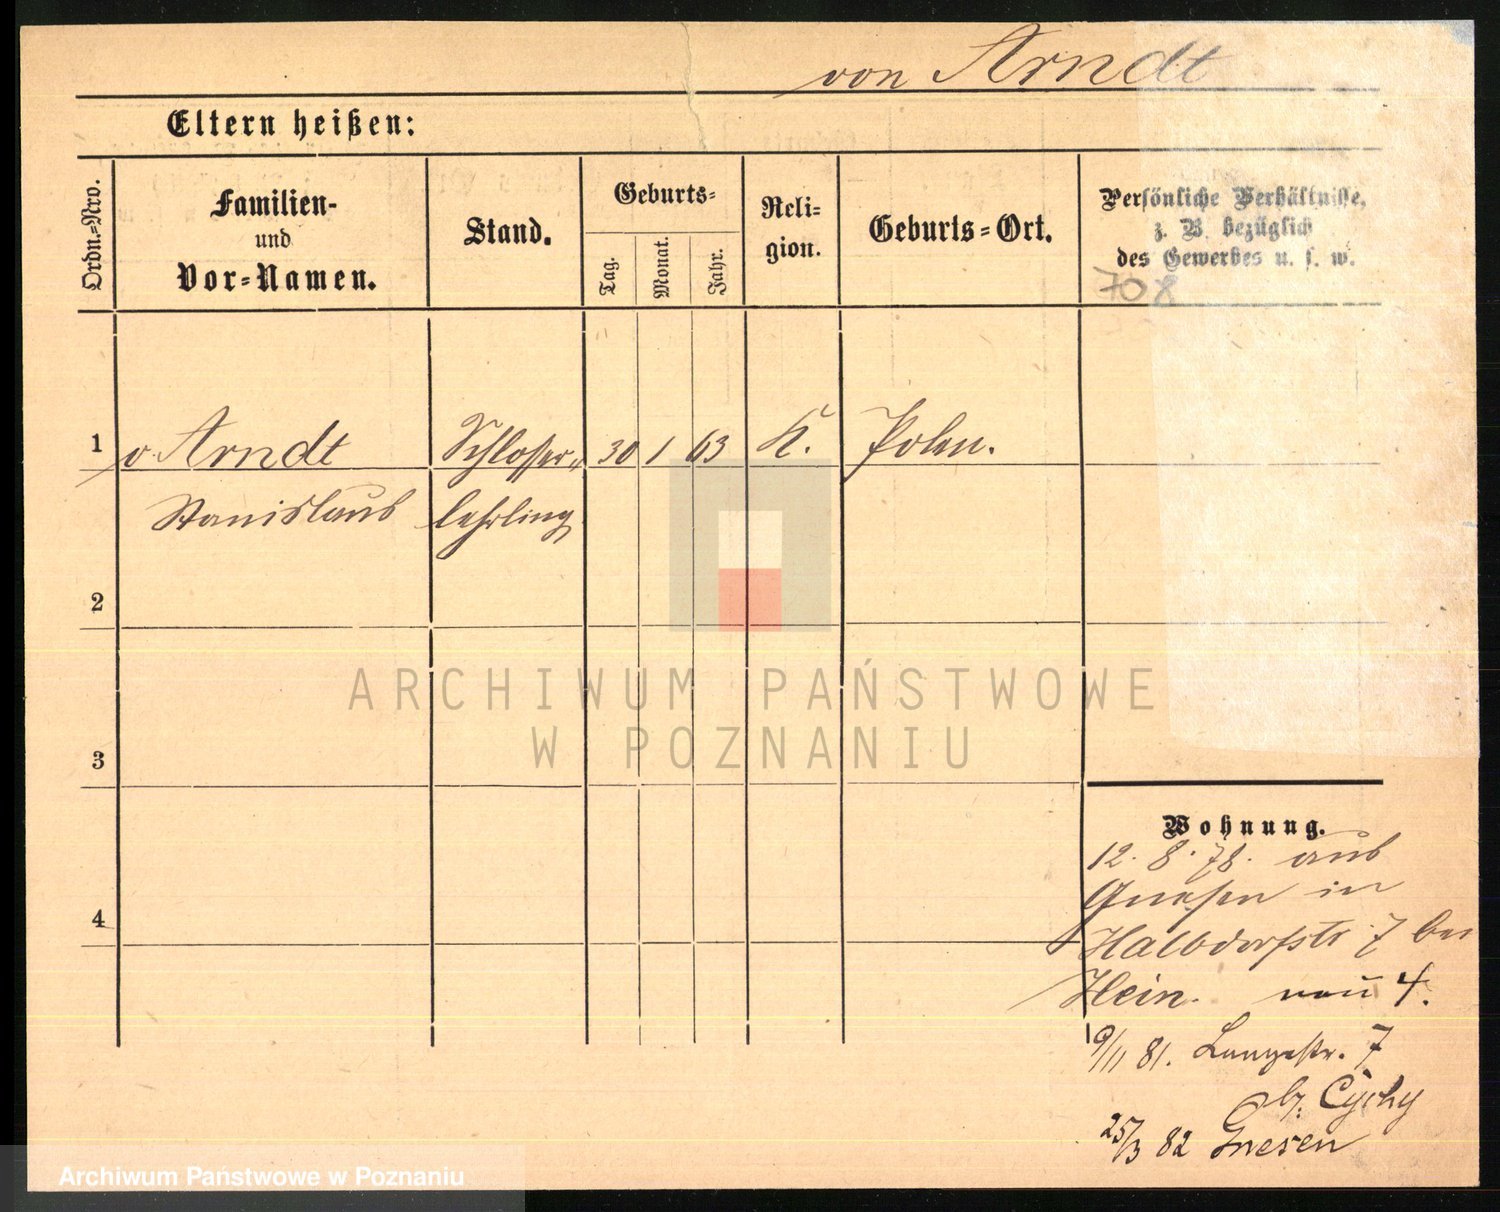 von Arndt
Eltern heißen:
Ordn.=Nro.
Familien-
und
Vor=Namen.
Stand.
Geburts=
Tag.
Monat.
Jahr.
Reli=
gion.
Geburts=Ort.
Persönliche Verhältnisse,
z. B. bezüglich
des Gewerbes u. s. w.
708
1 v. Arndt Schlosser= 30 1 63 K. Polen.
Stanislaus lehrling
2
3
4
Wohnung.
12. 8. 78. aus
Gnesen in
Halbdorfstr 7 bei
Hein. 4.
9/11 81. Langestr. 7
b. Cychy
25/3 82 Gnesen
ARCHIWUM PAŃSTWOWE
W POZNANIU
Archiwum Państwowe w Poznaniu